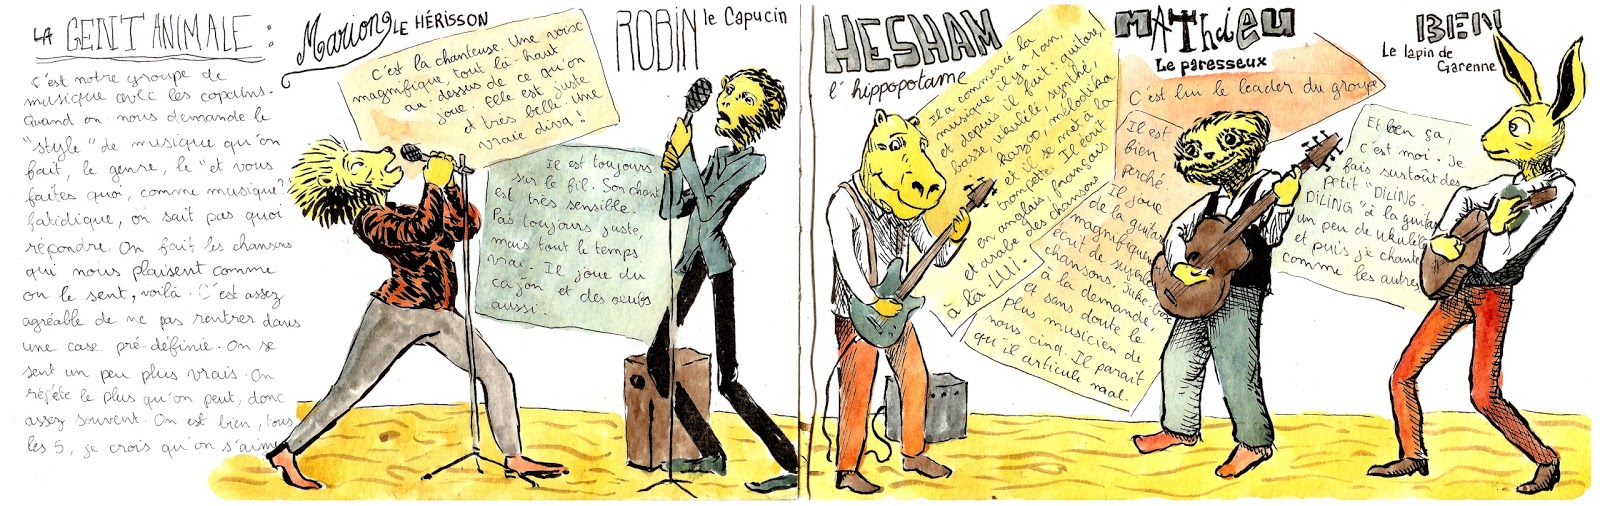 LA GENT ANIMALE :
C'est notre groupe de
musique avec les copains.
Quand on nous demande le
"style" de musique qu'on
fait, le genre, le "et vous
faites quoi, comme musique?"
fatidique, on sait pas quoi
répondre. On fait les chansons
qui nous plaisent comme
on le sent, voilà. C'est assez
agréable de ne pas rentrer dans
une case pré-définie. On se
sent un peu plus vrais. On
répète le plus qu'on peut, donc
assez souvent. On est bien, tous
les 5, je crois qu'on s'aime
Marion LE HÉRISSON
C'est la chanteuse. Une voix
magnifique, tout là-haut
au dessus de ce qu'on
joue. Elle est juste
et très belle. Une
vraie diva!
ROBIN le Capucin
Il est toujours
sur le fil. Son chant
est très sensible.
Pas toujours juste,
mais tout le temps
vrai. Il joue du
cajón et des oeufs
aussi.
HESHAM
l'hippopotame
Il a commencé la
musique il y a 1 an,
et depuis il fait: guitare,
basse, ukulélé, synthé,
kazoo, mélodika
et il se met à la
trompette. Il écrit
en anglais, français
et arabe des chansons
à-la-LUI.
MATHIEU
Le paresseux
C'est lui le leader du groupe
Il est
bien
perché
Il joue
de la guitare
magnifiquement
écrit de
chansons.
à la demande,
et sans doute le
plus musicien de
nous cinq. Il parait
qu'il articule mal.
BEN
Le lapin de
Garenne
Et ben ça,
c'est moi. Je
fais surtout des
petit "DILING.
DILING" à la guitare
un peu de ukulélé
et puis je chante
comme les autres